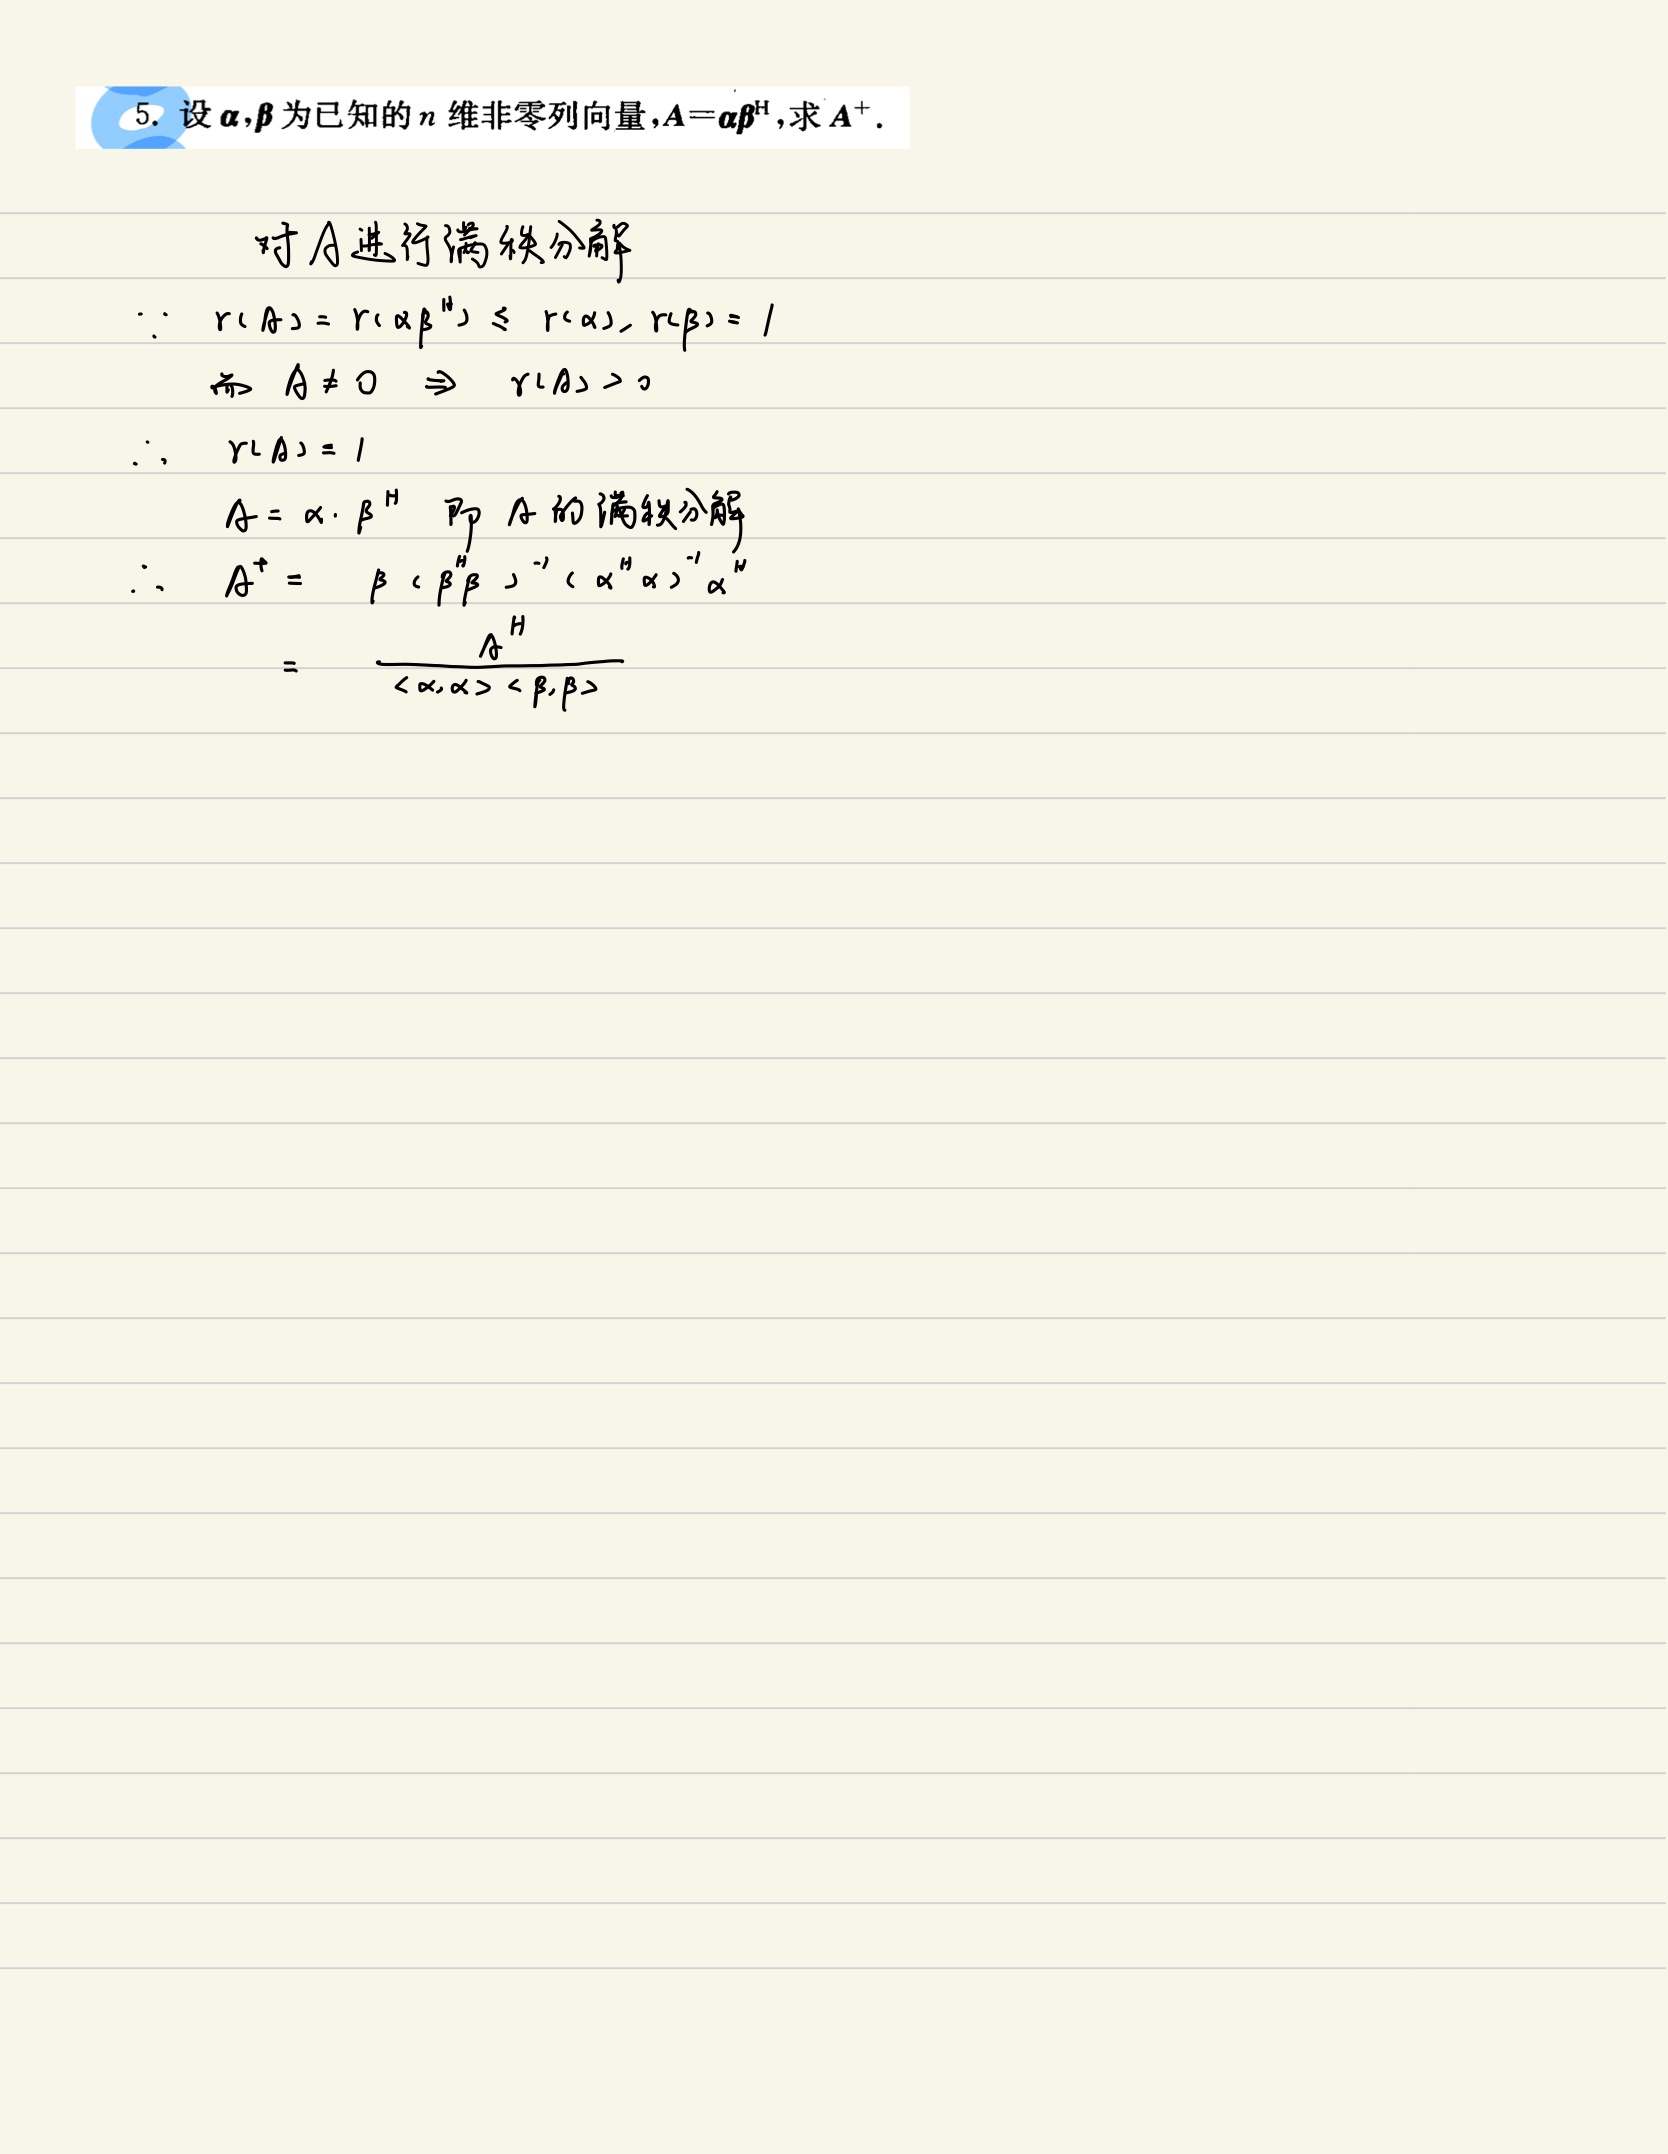 5. 设 α,β 为已知的 n 维非零列向量,A=αβᴴ,求 A⁺.
对A进行满秩分解
∵ r(A) = r(αβᴴ) ≤ r(α), r(β) = 1
而 A ≠ 0 ⇒ r(A) > 0
∴ r(A) = 1
A = α·βᴴ 即 A 的满秩分解
∴ A⁺ = β(βᴴβ)⁻¹(αᴴα)⁻¹αᴴ
= Aᴴ / <α,α><β,β>